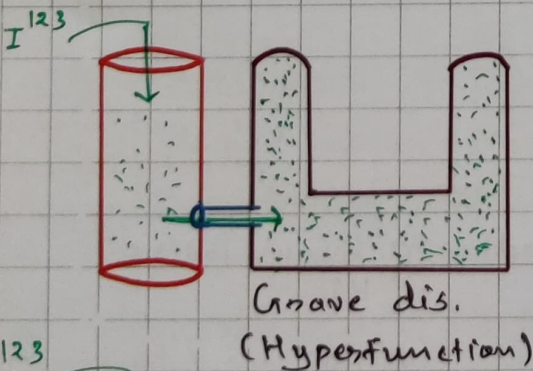 I¹²³
Grave dis.
(Hyperfunction)
123